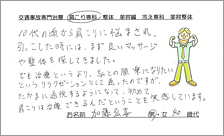 交通事故専門治療 肩こり専科 整体 美容鍼 冷え専科 美容整体
10代の頃から肩こりに悩まされ、
引っこした時には、まず良いマッサージ
や整体を探してました。
でも治療というより、揉んで頂き楽になりたい
というリラクゼーションとして通ってたのですが、
たかはし
に通院するようになって、初めて
肩こりは治療できるんだということを実感しています。
お名前 加藤 男・女 40歳代